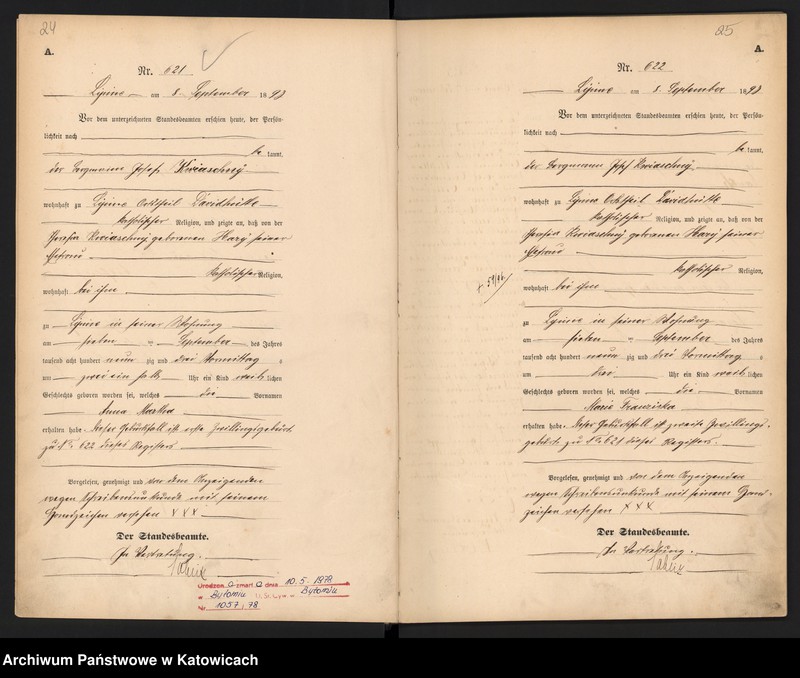 24
A.
Nr. 621
Lipine am 8. September 1893
Vor dem unterzeichneten Standesbeamten erschien heute, der Persön-
lichkeit nach
be kannt,
der Bergmann Josef Kwiaschny
wohnhaft zu Lipine Ortstheil Davidhütte
katholischer Religion, und zeigte an, daß von der
Kwiaschny geborenen seiner
Ehefrau
katholischer Religion,
wohnhaft bei ihm
zu Lipine in seiner Wohnung
am sieben ten September des Jahres
tausend acht hundert neun zig und drei Vormittag s
um zwei ein halb Uhr ein Kind weib lichen
Geschlechts geboren worden sei, welches die Vornamen
Anna Martha
erhalten habe. Dieser Geburtsfall ist erste Zwillingsgeburt
zu Nr. 622 dieses Registers
Vorgelesen, genehmigt und von dem Anzeigenden
wegen Schreibensunkunde mit seinem
Handzeichen versehen XXX
Der Standesbeamte.
In Vertretung.
Urodzon a zmarł a dnia 10.5.1978
w Bytomiu Bytomiu
Nr 1057/78
25
A.
Nr. 622
Lipine am 8. September 1893
Vor dem unterzeichneten Standesbeamten erschien heute, der Persön-
lichkeit nach
be kannt,
der Bergmann Josef Kwiaschny
wohnhaft zu Lipine Ortstheil Davidhütte
katholischer Religion, und zeigte an, daß von der
Kwiaschny geborenen seiner
Ehefrau
katholischer Religion,
wohnhaft bei ihm
zu Lipine in seiner Wohnung
am sieben ten September des Jahres
tausend acht hundert neun zig und drei Vormittag s
um drei Uhr ein Kind weib lichen
Geschlechts geboren worden sei, welches die Vornamen
Marie Franziska
erhalten habe. Dieser Geburtsfall ist zweite Zwillings-
geburt zu Nr. 621 dieses Registers.
Vorgelesen, genehmigt und von dem Anzeigenden
wegen Schreibensunkunde mit seinem Hand-
zeichen versehen XXX
Der Standesbeamte.
In Vertretung.
Archiwum Państwowe w Katowicach